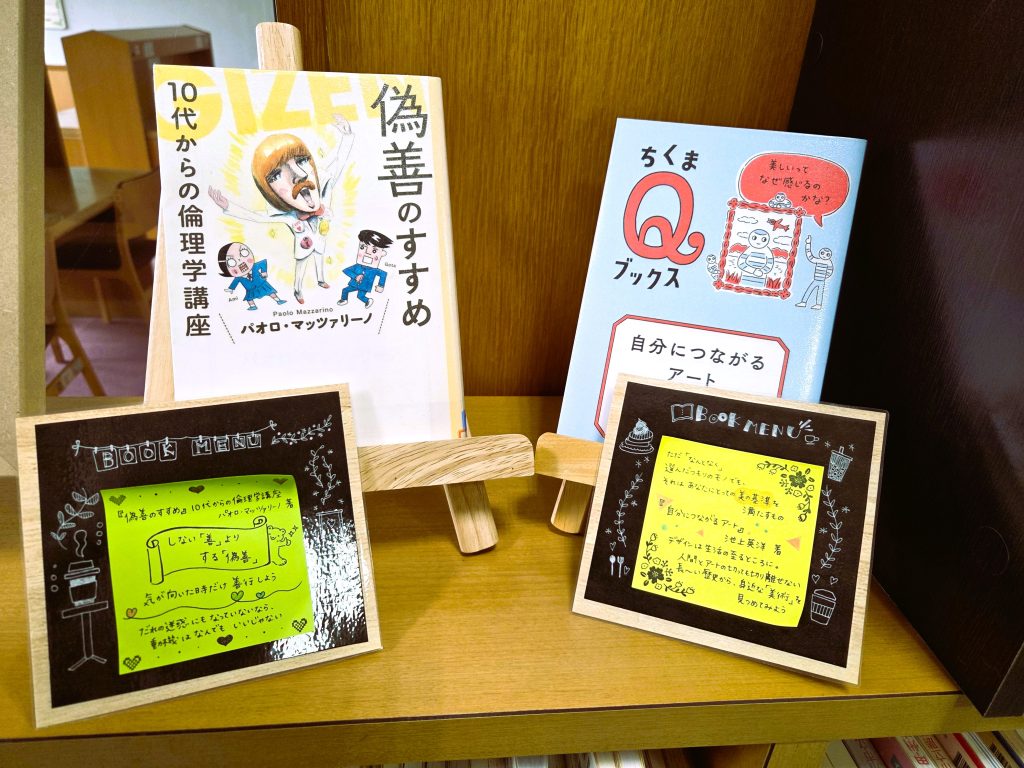 GIZEN
偽善のすすめ
10代からの倫理学講座
Ami
Gota
Paolo Mazzarino
パオロ・マッツァリーノ
ちくま
Q
ブックス
美しいって
なぜ感じるの
かな?
自分につながる
アート
BOOK MENU
『偽善のすすめ』10代からの倫理学講座
パオロ・マッツァリーノ 著
しない「善」より
する「偽善」
気が向いた時だけ 善行しよう
だれの迷惑にもなっていないなら、
動機はなんでも いいじゃない
BOOK MENU
ただ「なんとなく」
選んだつもりのモノでも、
それは あなたにとっての 美の基準を
満たすもの
『自分につながるアート』
池上英洋 著
デザインは生活の至るところに。
人間とアートのもってもきり離せない
長〜い歴史から、身近な「美術」を
見つめてみよう